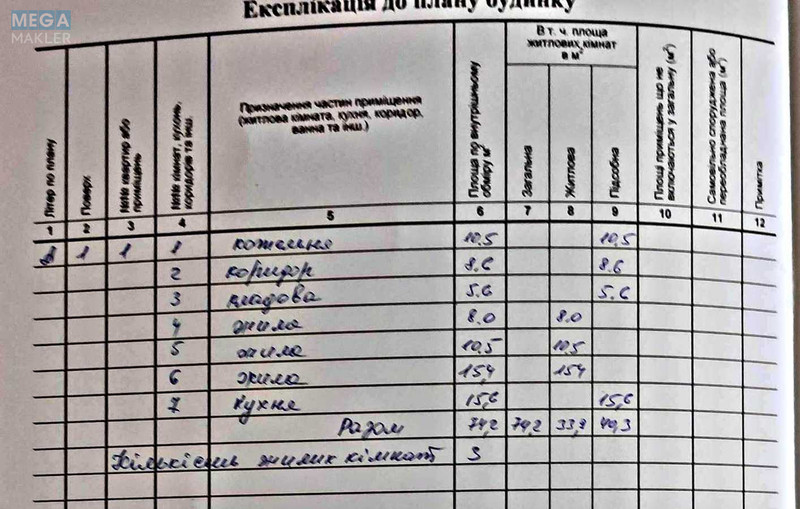 MEGA
MAKLER
Експлікація до плану будинку
Літер по плану
Поверх
№№ квартир або приміщень
№№ кімнат, кухонь, коридорів та інш.
Призначення частин приміщення
(житлова кімната, кухня, коридор,
ванна та інш.)
Площа по внутрішньому обміру м²
В т. ч. площа
житлових кімнат
в м²
Загальна
Житлова
Підсобна
Площа приміщень що не включаються у загальну (м²)
Самовільно споруджена або переобладнана площа (м²)
Примітка
1 2 3 4 5 6 7 8 9 10 11 12
1 1 1 котельня 10,5 10,5
2 коридор 8.6 8.6
3 кладова 5.6 5.6
4 жила 8.0 8.0
5 жила 10,5 10,5
6 жила 15,4 15,4
7 кухня 15,6 15,6
Разом 74,2 74,2 33,9 40,3
Кількість жилих кімнат 3